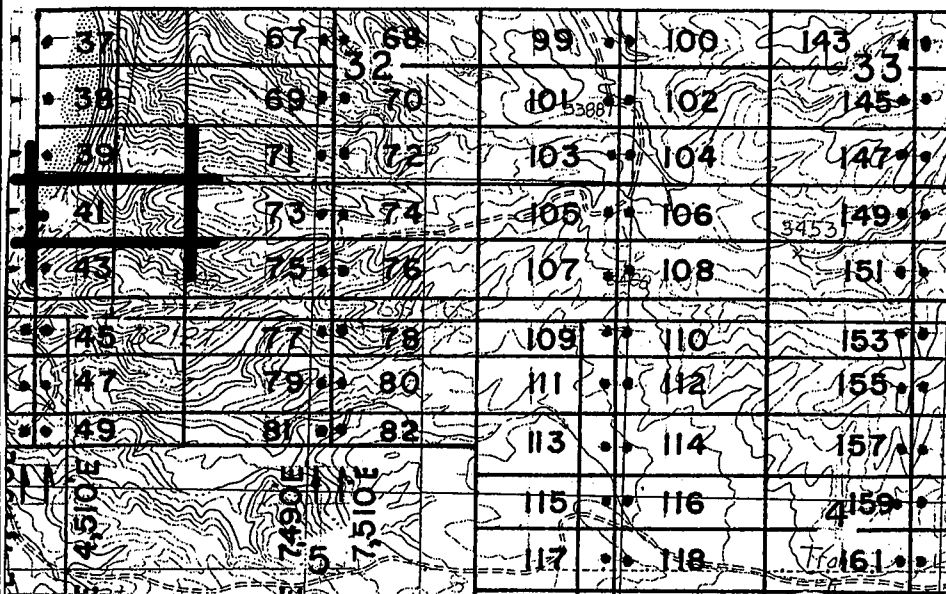 37 67 68 99 100 143
32 33
38 69 70 101 5388 102 145
39 71 72 103 104 147
41 73 74 105 106 3453 149
43 75 76 107 108 151
45 77 78 109 110 153
47 79 80 111 112 155
49 81 82 113 114 157
115 116 4 159
117 118 161
4,510 E
7,490 E
5
7,510 E